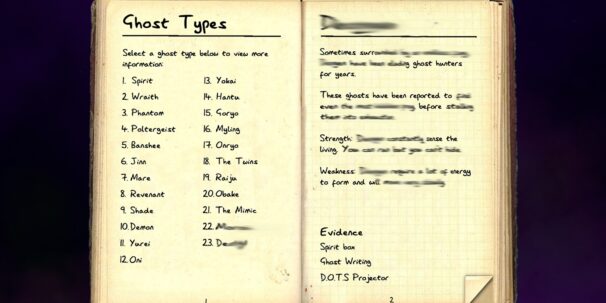 Ghost Types
Select a ghost type below to view more
information:
1. Spirit
2. Wraith
3. Phantom
4. Poltergeist
5. Banshee
6. Jinn
7. Mare
8. Revenant
9. Shade
10. Demon
11. Yurei
12. Oni
13. Yokai
14. Hantu
15. Goryo
16. Myling
17. Onryo
18. The Twins
19. Raiju
20. Obake
21. The Mimic
22.
23. De
1
Sometimes
have been eluding ghost hunters
for years.
These ghosts have been reported to
even the before stealing
them into
Strength: constantly sense the
living. You can run but you can't hide.
Weakness: require a lot of energy
to form and will
Evidence
Spirit box
Ghost Writing
D.O.T.S Projector
2